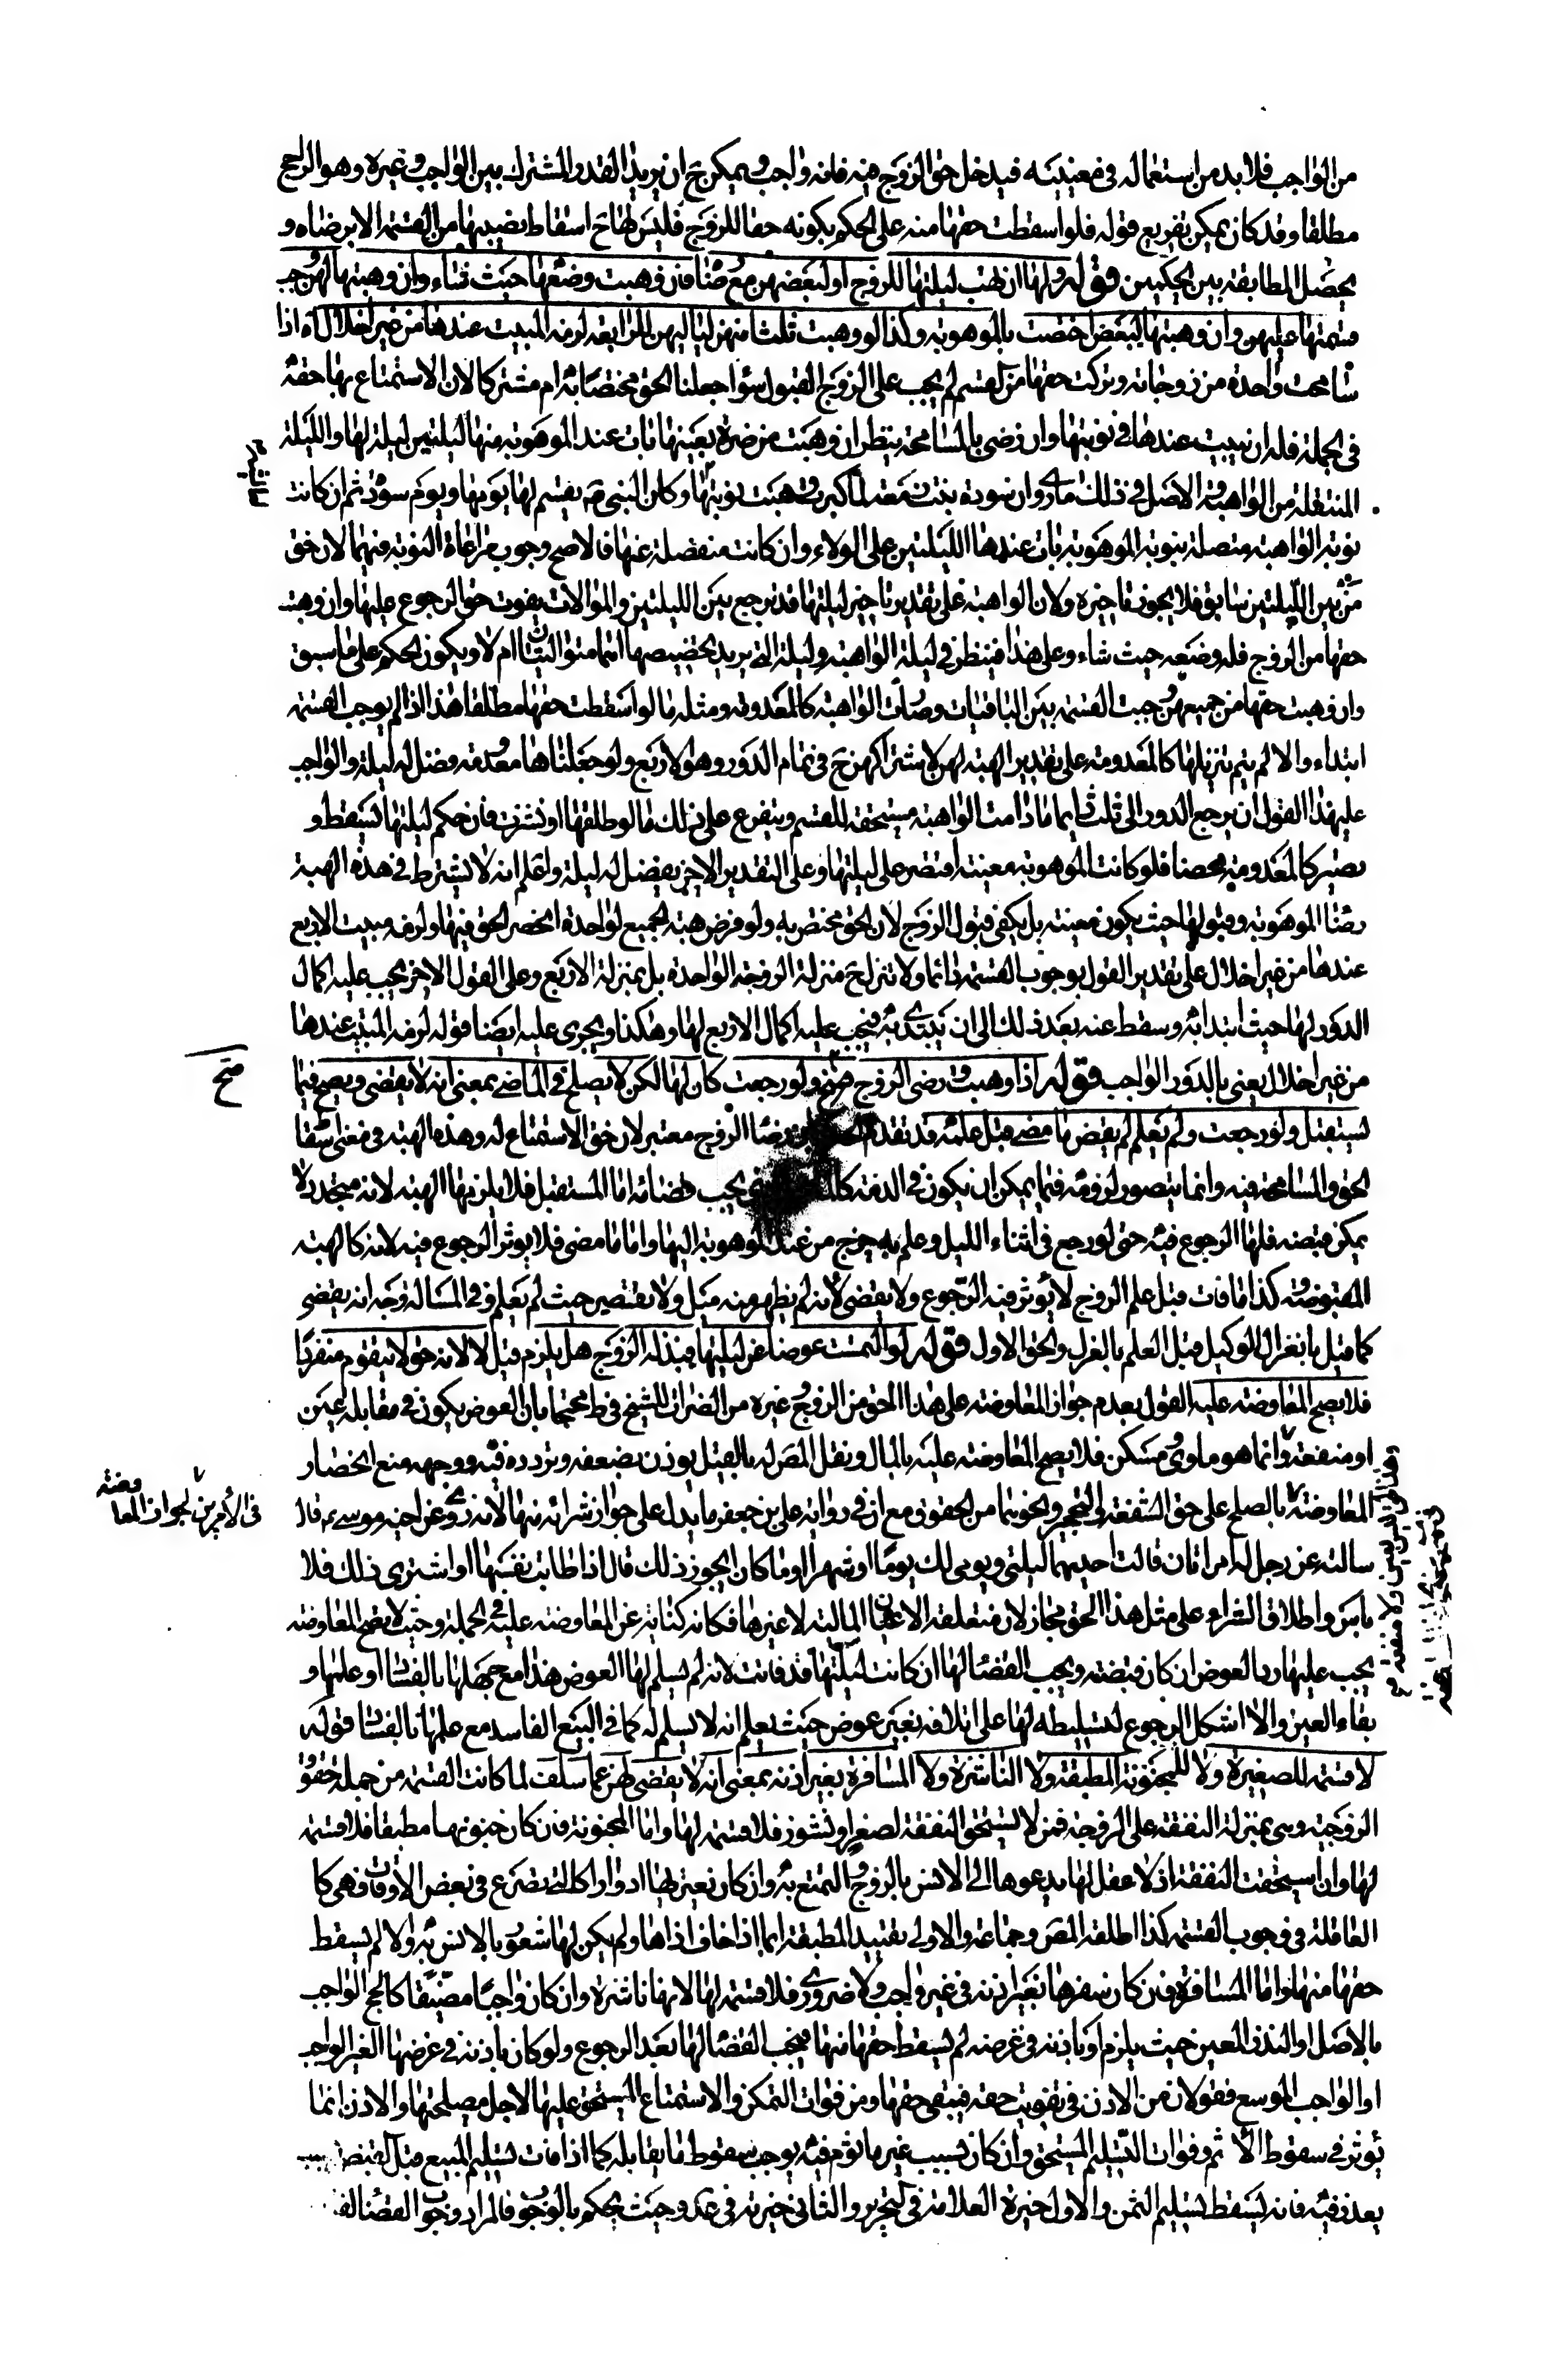 من الواجب فلابد من استعماله في معنييه فيدخل حق الزوج فيه فانه واجب ويمكن ح ان يريد القدر المشترك بين الواجب وغيره وهو الراجح
مطلقا وقد كان يمكن تفريع قوله فلو اسقطت حقها منه على الحكم بكونه حقا للزوج فليس لها ح اسقاط نصيبها من القسمة الا برضاه و
يحصل المطابقة بين الحكمين قوله ولها ان تهب ليلتها للزوج او لبعضهن مع رضاه فان وهبت وضعها حيث شاء وان وهبتها لهن وجب
قسمتها عليهن وان وهبتها لبعض اختصت بالموهوبة وكذا لو وهبت ثلث منهن لياليهن للرابعة لزمه المبيت عندها من غير اخلال اه اذا
سامحت واحدة من زوجاته وتركت حقها من القسم لم يجب على الزوج القبول سواء جعلنا الحق مختصا به ام مشتركا لان الاستمتاع بها حقه
في الجملة فله ان يبيت عندها في نوبتها وان رضى بالمسامحة ينظر ان وهبت من ضرة بعينها بات عند الموهوبة منها ليلتين ليلة لها والليلة
المنتقلة من الواهبة والاصل في ذلك ما روى ان سودة بنت زمعة لما كبرت وهبت نوبتها وكان النبي ص يقسم لها يومها ويوم سودة ثم ان كانت
نوبة الواهبة متصلة بنوبة الموهوبة بات عندها الليلتين على الولاء وان كانت منفصلة عنها فالاصح وجوب مراعاة النوبة فيهما لان حق
من بين الليلتين سابق فلا يجوز تاخيره ولان الواهبة على تقدير تاخير ليلتها قد ترجع بين الليلتين والموالات يفوت حق الرجوع عليها وان وهبت
حقها من الزوج فله وضعه حيث شاء وعلى هذا فينظر في ليلة الواهبة وليلة التي يريد تخصيصها اهما متواليتان ام لا ويكون الحكم على ما سبق
وان وهبت حقها من جميعهن وجبت القسمة بين الباقيات وصارت الواهبة كالمعدومة ومثله ما لو اسقطت حقها مطلقا هذا اذا لم يوجب القسمة
ابتداء والا لم يتم تنزيلها كالمعدومة على تقدير الهبة لهن لاشتراكهن ح في تمام الدور وهو الاربع ولو جعلناها معدومة فضل له ليلة والواجب
على هذا القول ان يرجع الدور الى ثلث دائما ما دامت الواهبة مستحقة للقسم ويتفرع على ذلك ما لو طلقها او نشزت فان حكم ليلتها يسقط و
يصير كالمعدومة محضا فلو كانت الموهوبة معينة اقتصر على ليلتها وعلى التقدير الاخير يفضل له ليلة واعلم انه لا يشترط في هذه الهبة
رضا الموهوبة وقبولها حيث يكون معينة بل يكفى قبول الزوج لان الحق مختص به ولو فرض هبة الجميع لواحدة انحصر الحق فيها ولزمه مبيت الاربع
عندها من غير اخلال على تقدير القول بوجوب القسمة دائما ولا تنزل ح منزلة الزوجة الواحدة بل بمنزلة الاربع وعلى القول الاخر يجب عليه اكمال
الدور لها حيث ابتدا به وسقط عنه بعد ذلك الى ان يبتدئ به فيجب عليه اكمال الاربع لها وهكذا ويجرى عليه ايضا قوله لزمه المبيت عندها
من غير اخلال يعنى بالدور الواجب قوله اذا وهبت ورضى الزوج صح ولو رجعت كان لها لكن لا يصح في الماضي بمعنى انه لا يقضى ويصح فيما
يستقبل ولو رجعت ولم يعلم لم يقض ما مضى قبل علمه قد تقدم رضا الزوج معتبر لان حق الاستمتاع له وهذه الهبة في معنى اسقاط
الحق والمسامحة فيه وانما يتصور لزومه فيما يمكن ان يكون في الذمة يجب قضائه اما المستقبل فلا يلزم بها الهبة لانه متجدد لا
يمكن قبضه فلها الرجوع فيه حتى لو رجع في اثناء الليل وعلم به خرج من عند الموهوبة اليها واما ما مضى فلا يوثر الرجوع فيه لانه كالهبة
المقبوضة وكذا ما فات قبل علم الزوج لا يوثر فيه الرجوع ولا يقضى لانه لم يظهر منه ميل ولا تقصير حيث لم يعلم وفي المسالة وجه انه يقضى
كما قيل بانعزال الوكيل قبل العلم بالعزل والحق الاول قوله لو التمست عوضا عن ليلتها فبذله الزوج هل يلزم قيل لا لانه حق لا يتقوم منفردا
فلا يصح المعاوضة عليه القول بعدم جواز المعاوضة على هذا الحق من الزوج وغيره من الضرات للشيخ في ط محتجا بان العوض يكون في مقابلة عين
او منفعة وانما هو ماوى ومسكن فلا يصح المعاوضة عليه بالمال ونقل المص له بالقيل يوذن بضعفه وتردده فيه ووجهه منع انحصار
المعاوضة بالصلح على حق الشفعة والتحجير ونحوهما من الحقوق مع ان في رواية على بن جعفر ما يدل على جواز شرائه منها لانه روى عن اخيه موسى ع قال
سالته عن رجل له امراتان قالت احديهما ليلتى ويومى لك يوما او شهرا او ما كان ايجوز ذلك قال اذا طابت نفسها او اشترى ذلك فلا
باس واطلاق الشراء على مثل هذا الحق مجاز لان متعلقه الاعيان المالية لا غيرها فكانه كناية عن المعاوضة عليه في الجملة وحيث لا يصح المعاوضة
يجب عليها رد العوض ان كان قبضته ويجب القضا لها ان كانت ليلتها قد فاتت لانه لم يسلم لها العوض هذا مع جهلهما بالفساد او علمهما و
بقاء العين والا اشكل الرجوع لتسليطه لها على اتلافه بغير عوض حيث يعلم انه لا يسلم له كما في البيع الفاسد مع علمهما بالفساد قوله
لا قسمة للصغيرة ولا للمجنونة المطبقة ولا الناشزة ولا المسافرة بغير اذنه بمعنى انه لا يقضى لهن عما سلف لما كانت القسمة من جملة حقوق
الزوجية وهى بمنزلة النفقة على الزوجة فمن لا يستحق النفقة لصغر او نشوز فلا قسمة لها واما المجنونة فان كان جنونها مطبقا فلا قسمة
لها وان استحقت النفقة اذ لا عقل لها يدعوها الى الانس بالزوج والتمتع به وان كان يعتريها ادوارا كالتى تصرع في بعض الاوقات فهى كا
العاقلة في وجوب القسمة كذا اطلقه المص وجماعة والاولى تقييد المطبقة ايضا بما اذا خاف اذاها ولم يكن لها شعور بالانس به والا لم يسقط
حقها منها واما المسافرة فان كان سفرها بغير اذنه في غير واجب ولا ضروري فلا قسمة لها لانها ناشزة وان كان واجبا مضيقا كالحج الواجب
بالاصل او النذر المعين حيث يلزم او باذنه في غرضه لم يسقط حقها منها فيجب القضا لها بعد الرجوع ولو كان باذنه في غرضها الغير الواجب
او الواجب الموسع فقولان من الاذن في تفويت حقه فيبقى حقها ومن فوات التمكن والاستمتاع المستحق عليها لاجل مصلحتها والاذن انما
يوثر في سقوط الاثم وفوات التسليم المستحق وان كان بسبب غير ماثوم فيه يوجب سقوط ما يقابله كما اذا فات تسليم المبيع قبل القبض بسبب
يعذر فيه فانه يسقط تسليم الثمن والاول خيرة العلامة في التحرير والثانى خيرته في عد وحيث يحكم بالوجوب فالمراد وجوب القضا
صح
في الامرين لجواز المعا
وضة